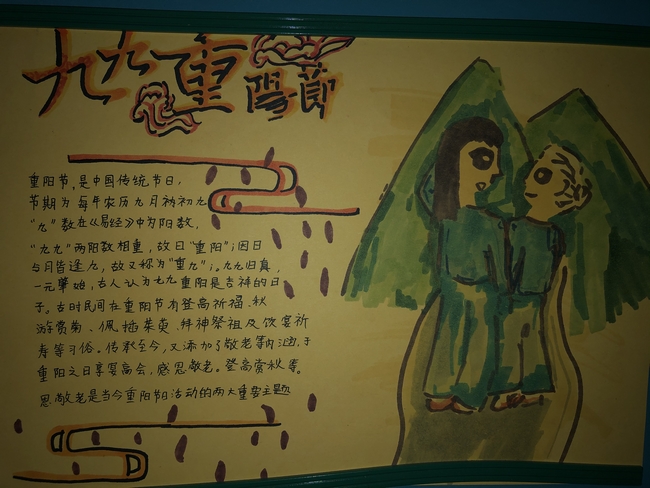 九九重陽節
重阳节,是中国传统节日,
节期为每年农历九月初九
"九"数在《易经》中为阳数,
"九九"两阳数相重,故曰"重阳";因日
与月皆逢九,故又称为"重九";。九九归真,
一元肇始,古人认为九九重阳是吉祥的日
子。古时民间在重阳节有登高祈福、秋
游赏菊、佩插茱萸、拜神祭祖及饮宴祈
寿等习俗。传承至今,又添加了敬老等内涵,于
重阳之日享宴高会,感恩敬老。登高赏秋
恩敬老是当今重阳节日活动的两大重要主题